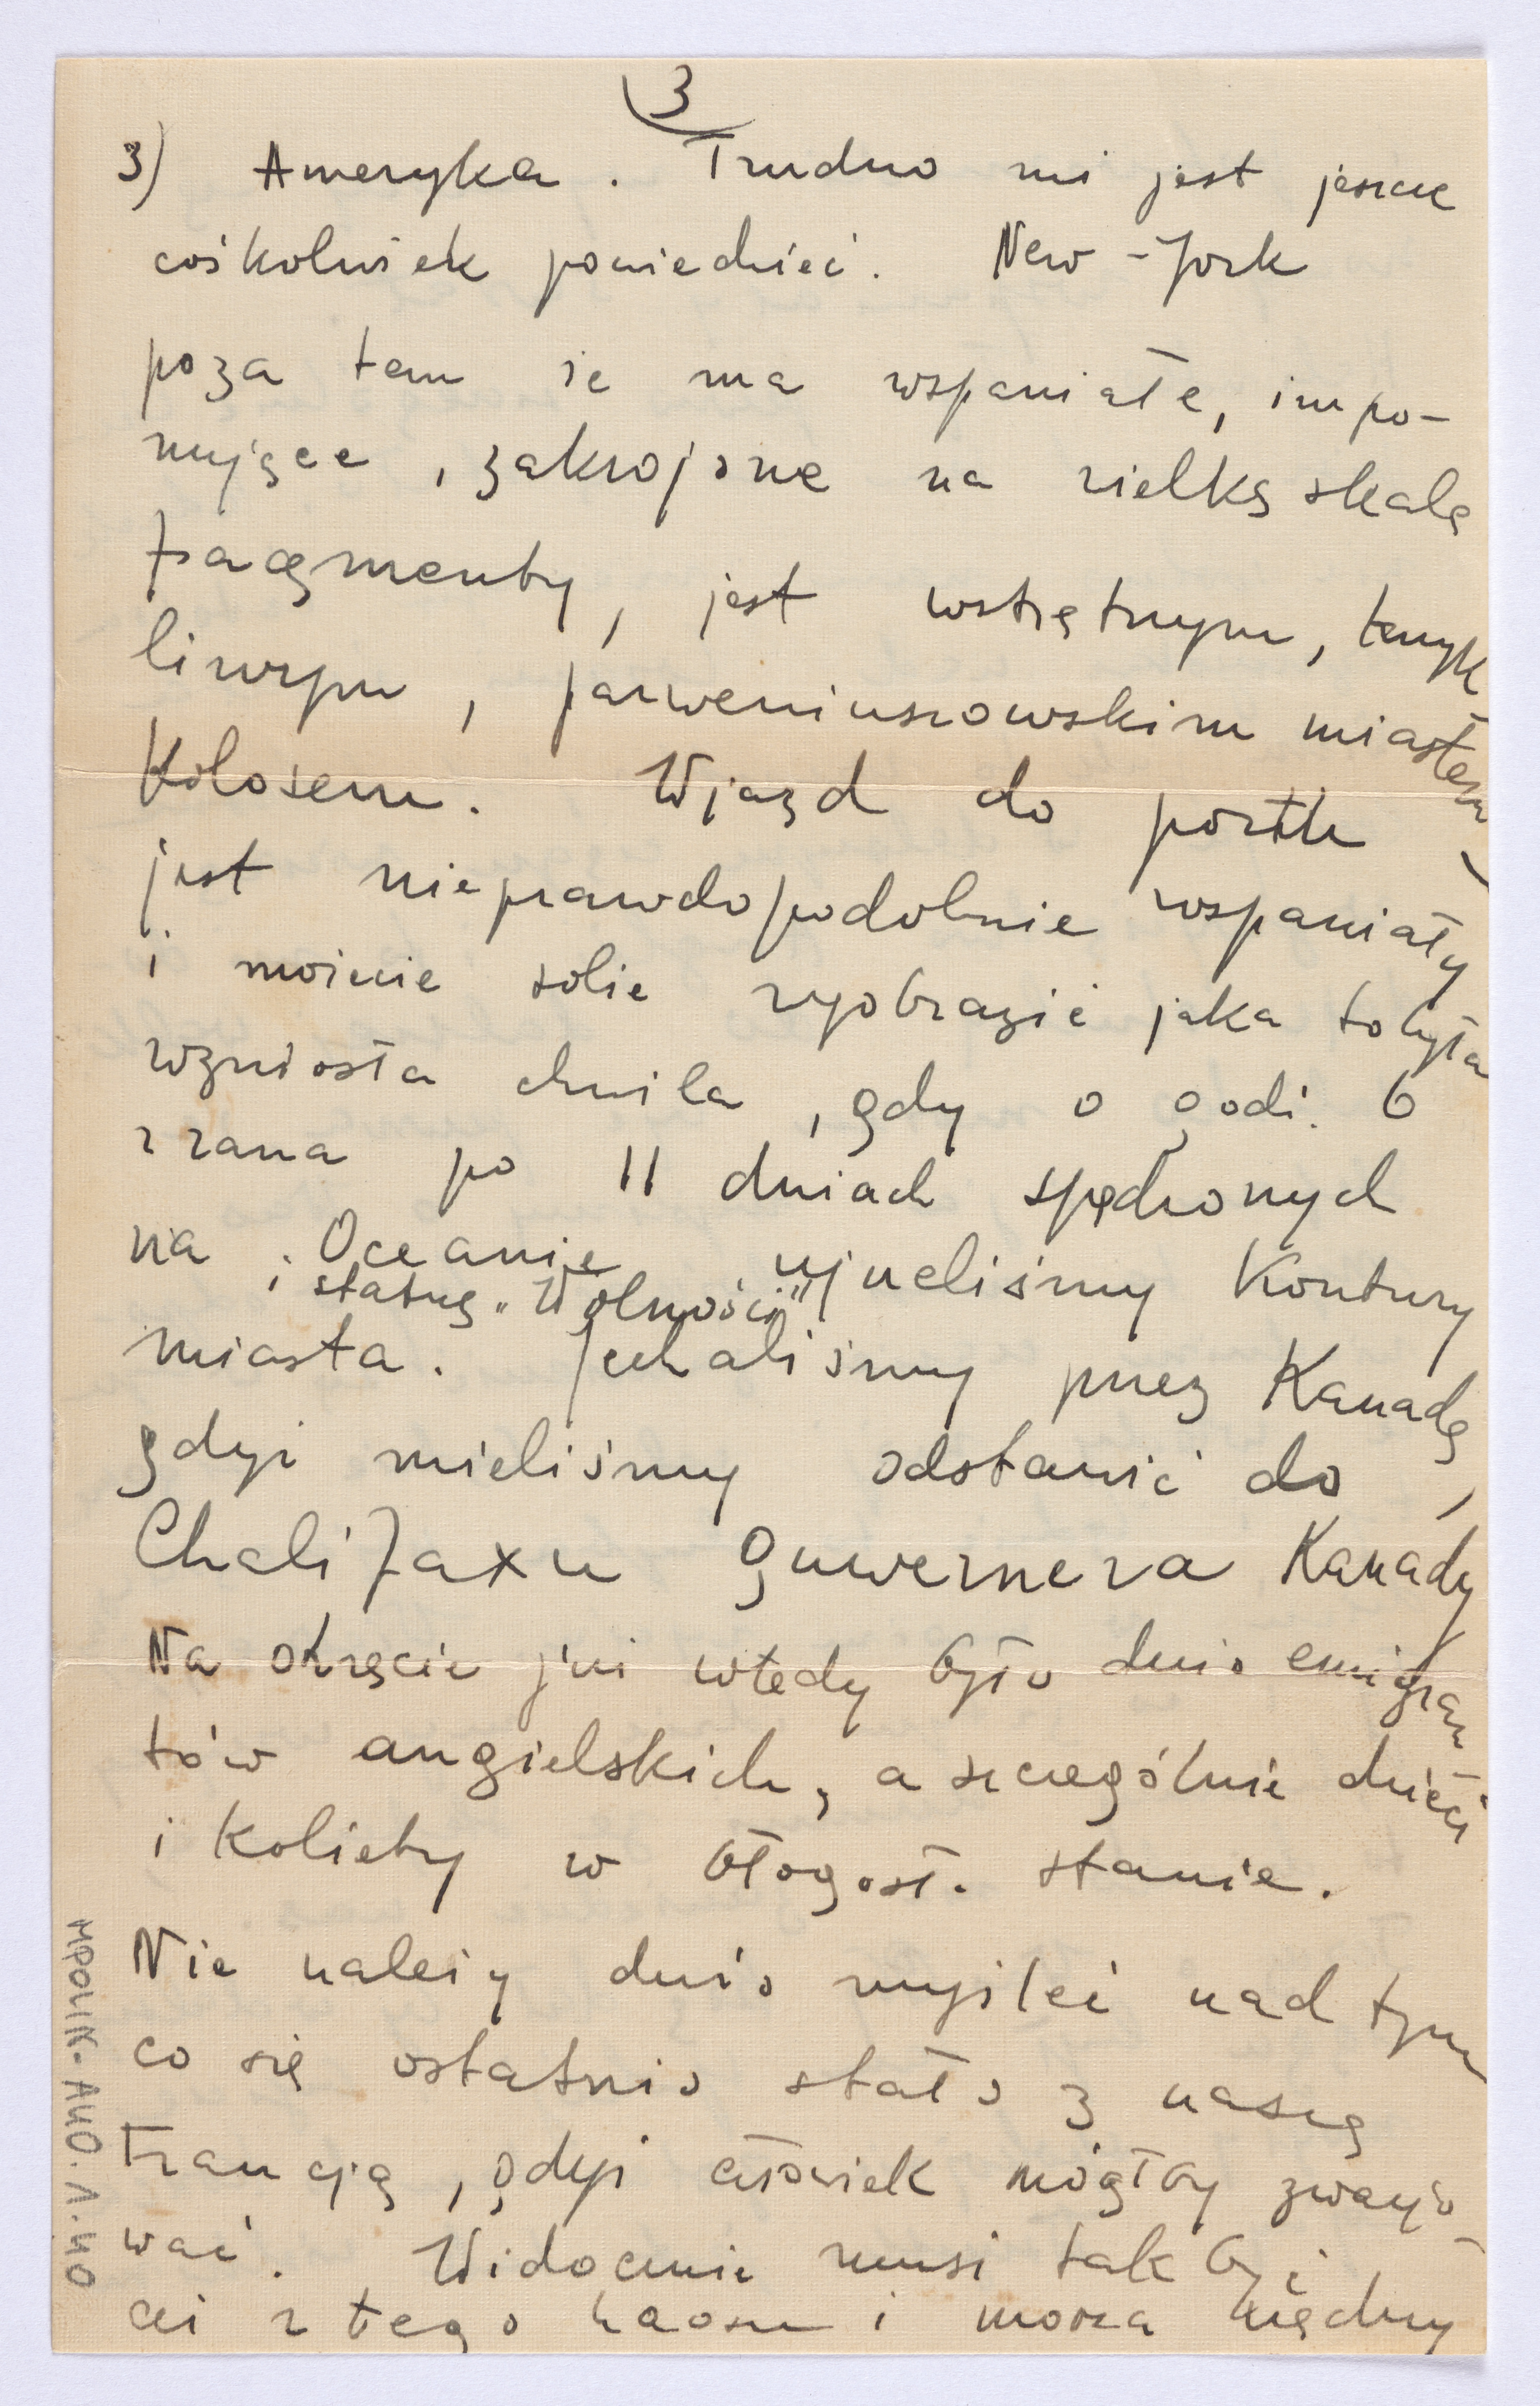 3
3) Ameryka. Trudno mi jest jeszcze
cośkolwiek powiedzieć. New-Jork
poza tem że ma wspaniałe, impo-
nujące, zakrojone na wielką skalę
fragmenty, jest wstrętnym, tandyk
liwym, parweniuszowskim miastem
Kolosem. Wjazd do portu
jest nieprawdopodobnie wspaniały
i możecie sobie wyobrazić jaka to była
wzniosła chwila, gdy o godź. 6
z rana po 11 dniach spędzonych
na Oceanie ujrzeliśmy Kontury
i statuę „Wolności"
miasta. Jechaliśmy przez Kanadę,
gdyż mieliśmy odstawić do
Chalifaxu guwernera Kanady
Na okręcie już wtedy było dużo emigran
tów angielskich, a szczególnie dzieci
i Kobiety w błogosł. stanie.
Nie należy dużo myśleć nad tym
co się ostatnio stało z naszą
Francją, gdyż człowiek mógłby zwarjo
wać. Widocznie musi tak być
aż z tego haosu i morza nędzy
MPOLIK-AHO.A.40